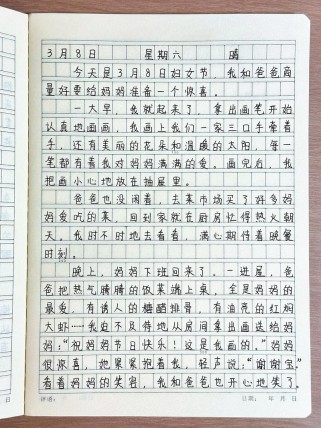 3月8日 星期六 晴
今天是3月8日妇女节，我和爸爸商
量好要给妈妈准备一个惊喜。
一大早，我就起来了，拿出画笔开始
认真地画画，我画上我们一家三口手牵着
手，还有美丽的花朵和温暖的太阳，每一
笔都有着我对妈妈满满的爱。画完后，我
把画小心地放在抽屉里。
爸爸也没闲着，去菜市场买了好多妈
妈爱吃的菜，回到家就在厨房忙得热火朝
天。我时不时地去看看，满心期待着晚餐
时刻。
晚上，妈妈下班回来了。一进屋，爸
爸把热气腾腾的饭菜端上桌，全是妈妈的
最爱，有诱人的糖醋排骨，有油亮的红焖
大虾……我迫不及待地从房间拿出画送给妈
妈：“祝妈妈节日快乐！这是我画的。”妈妈
很惊喜，她紧紧抱着我，轻声说：“谢谢宝”
看着妈妈的笑容，我和爸爸也开心地笑了。
日期： 年 月 日
日